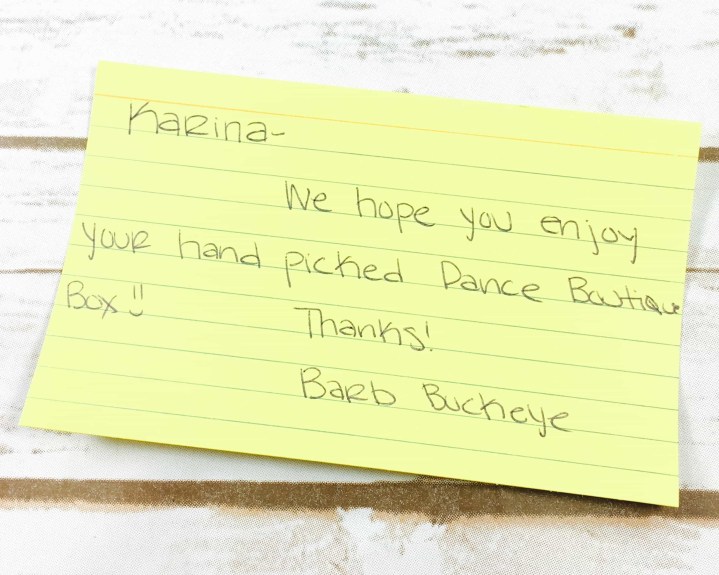 Karina-
We hope you enjoy
your hand picked Dance Boutique
Box!!
Thanks!
Barb Buckeye